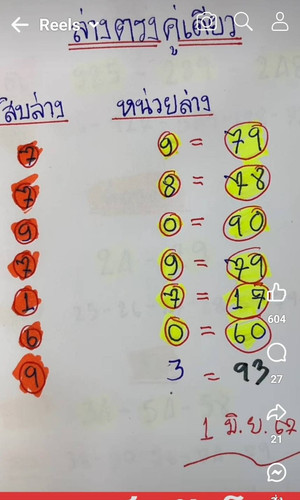 Reels
ล่างตรงคู่เดียว
สิบล่าง หน่วยล่าง
7 9 = 79
7 8 = 78
9 0 = 90
7 9 = 79
1 7 = 17
6 0 = 60
9 3 = 93
604
27
1 มิ.ย. 67
21